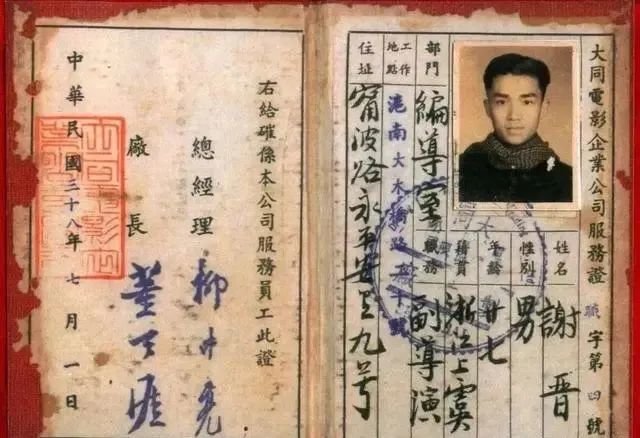 大同電影企業公司服務證 職字第四號
姓名 謝晉
性別 男
年齡 廿七
籍貫 浙江上虞
職務 副導演
部門 編導室
工作地點 滬南大木橋路十號
住址 甯波路永平安里九号
右給確係本公司服務員工此證
總經理 柳中亮
廠長 董天涯
中華民國三十八年七月一日